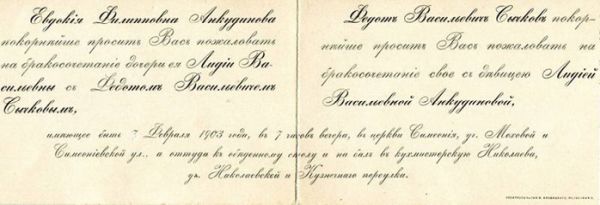 Евдокія Филипповна Анкудинова
покорнѣйше проситъ Васъ пожаловать
на бракосочетаніе дочери ея Лидіи Ва-
сильевны съ Ѳедотомъ Васильевичемъ
Сычковымъ,
Ѳедотъ Васильевичъ Сычковъ покор-
нѣйше проситъ Васъ пожаловать на
бракосочетаніе свое съ дѣвицею Лидіей
Васильевной Анкудиновой,
имѣющее быть Февраля 1903 года, въ 7 часовъ вечера, въ церкви Симеонія, уг. Моховой и
Симеоніевской ул., а оттуда къ обѣденному столу и на балъ въ кухмистерскую Николаева,
уг. Николаевской и Кузнечнаго переулка.